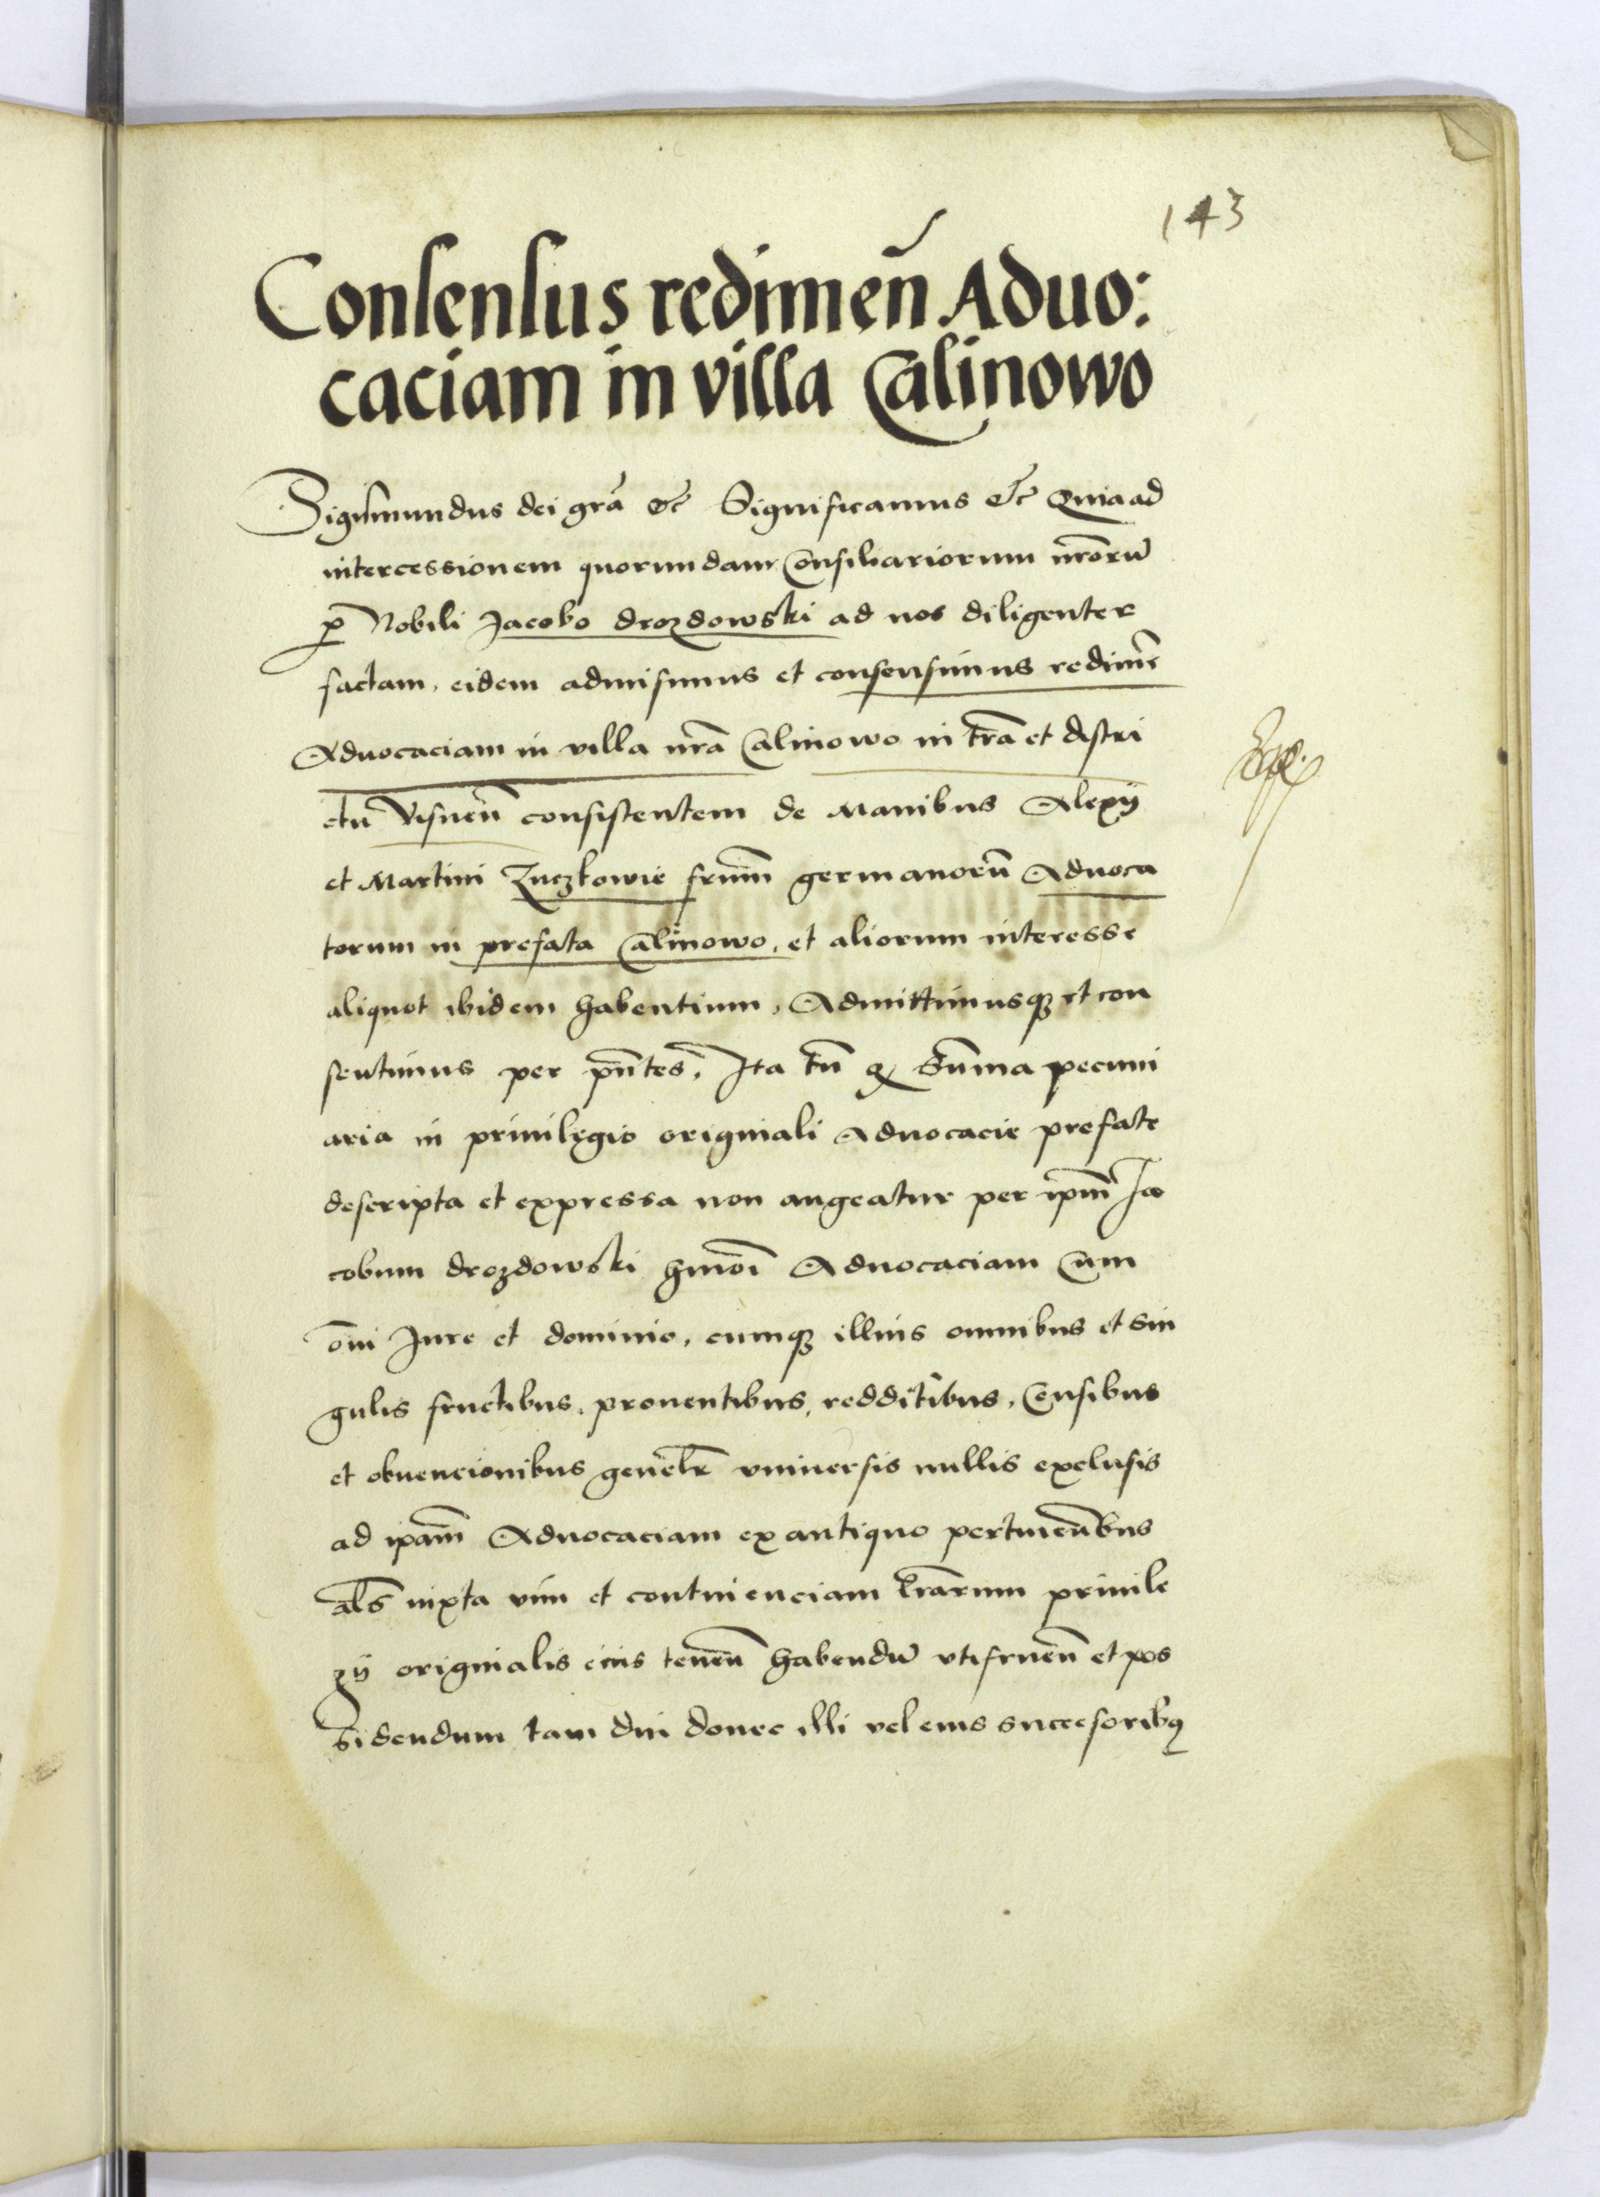 143
Consensus redimen̄ Aduo:
caciam in villa Calinowo
Sigismundus dei grā &c Significamus &c Quia ad
intercessionem quorundam Consiliariorum nr̄orū
ꝓ Nobili Jacobo drozdowski ad nos diligenter
factam, eidem admisimus et consensimus redimē
Aduocaciam in villa nr̄a Calinowo in tr̄a et distri
ctu Visnen̄ consistentem de Manibus Alexij
et Martini Zuczkowie fr̄um germanorū Aduoca
torum in prefata Calinowo, et aliorum interesse
aliquot ibidem habentium, Admittimusqꝫ et con
sentimus per pn̄tes. Ita tn̄ ꝙ Sūma pecuni
aria in priuilegio originali Aduocacie prefate
descripta et expressa non augeatur per ip̄m Ja
cobum drozdowski hm̄oi Aduocaciam Cum
om̄i Jure et dominio, cumqꝫ illius omnibus et sin
gulis fructibus, prouentibus, redditibus, Censibus
et obuencionibus gen̄elr̄ vniuersis nullis exclusis
ad ip̄am Aduocaciam ex antiquo pertinen̄bus
al̄s iuxta vim et continenciam lr̄arum priuile
gij originalis eius tenen̄ habendū vtifruen̄ et pos
sidendum tam diu donec illi vel eius succesoribꝫ